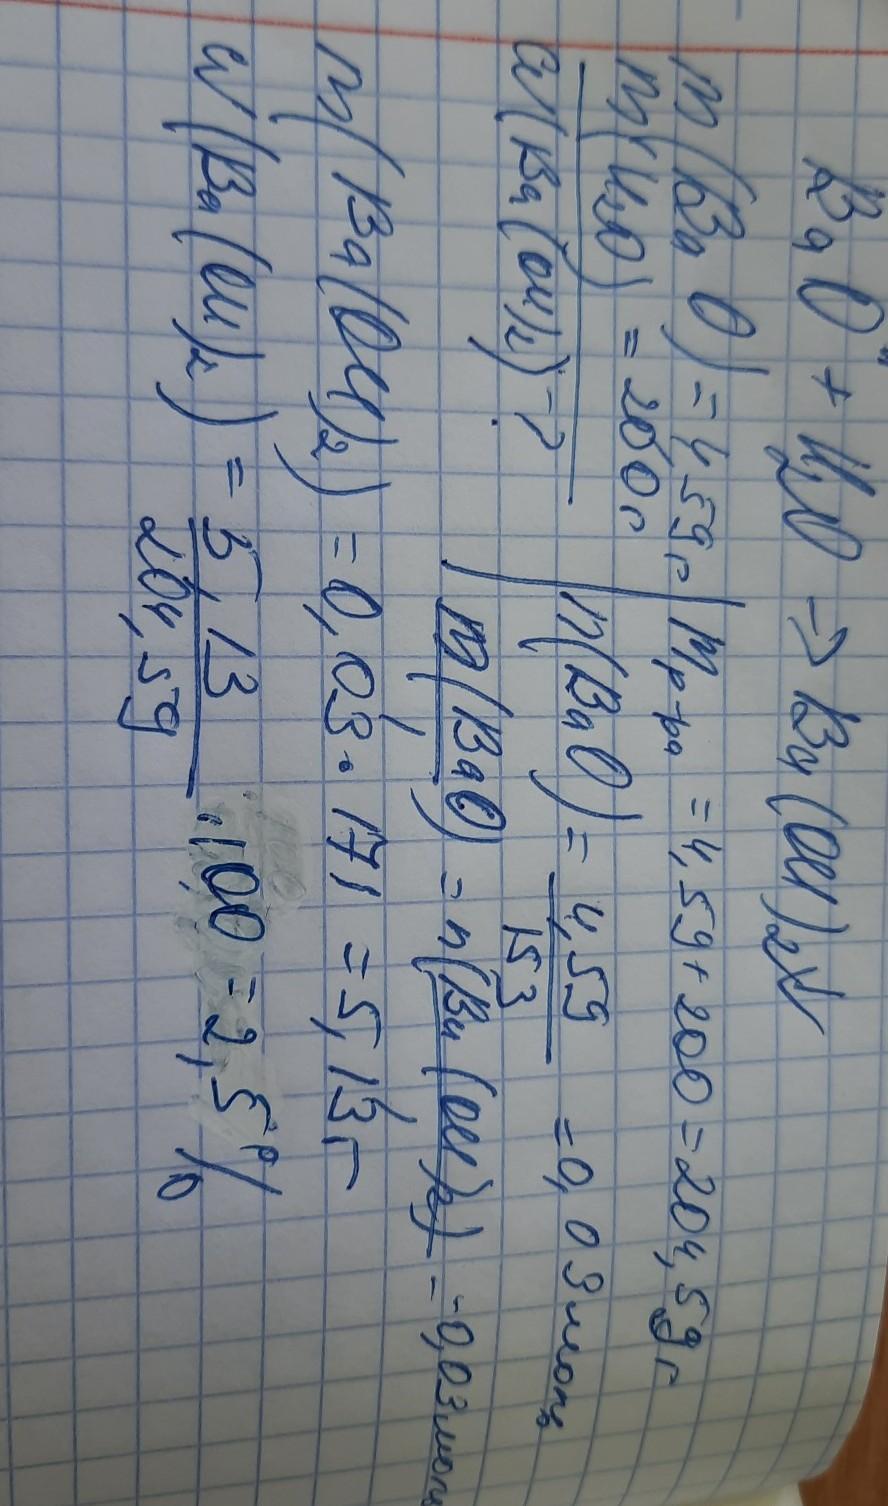 BaO + H2O → Ba(OH)2↓
m(BaO) = 4,59г | mр-ра = 4,59 + 200 = 204,59г
m(H2O) = 200г
n(BaO) = 4,59 / 153 = 0,03 моль
ω(Ba(OH)2) - ?
m(BaO) = n(Ba(OH)2) = 0,03 моль
m(Ba(OH)2) = 0,03 · 171 = 5,13г
ω(Ba(OH)2) = 5,13 / 204,59 · 100 = 2,5%